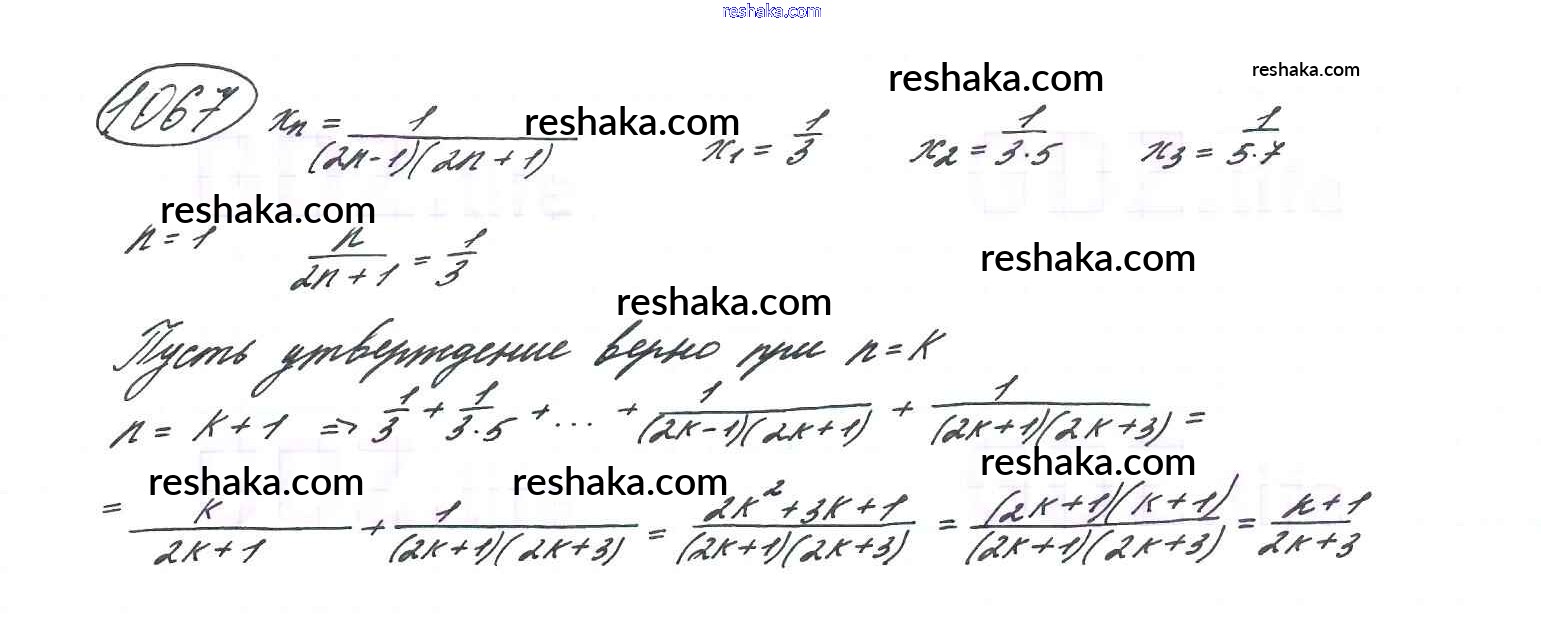 reshaka.com
reshaka.com reshaka.com
1067 xₙ = 1/((2n-1)(2n+1)) reshaka.com x₁ = 1/3 x₂ = 1/(3·5) x₃ = 1/(5·7)
reshaka.com
n = 1 n/(2n+1) = 1/3
reshaka.com
reshaka.com
Пусть утверждение верно при n = K
n = K+1 => 1/3 + 1/(3·5) + ... + 1/((2K-1)(2K+1)) + 1/((2K+1)(2K+3)) =
reshaka.com
reshaka.com reshaka.com
= K/(2K+1) + 1/((2K+1)(2K+3)) = (2K²+3K+1)/((2K+1)(2K+3)) = ((2K+1)(K+1))/((2K+1)(2K+3)) = (K+1)/(2K+3)